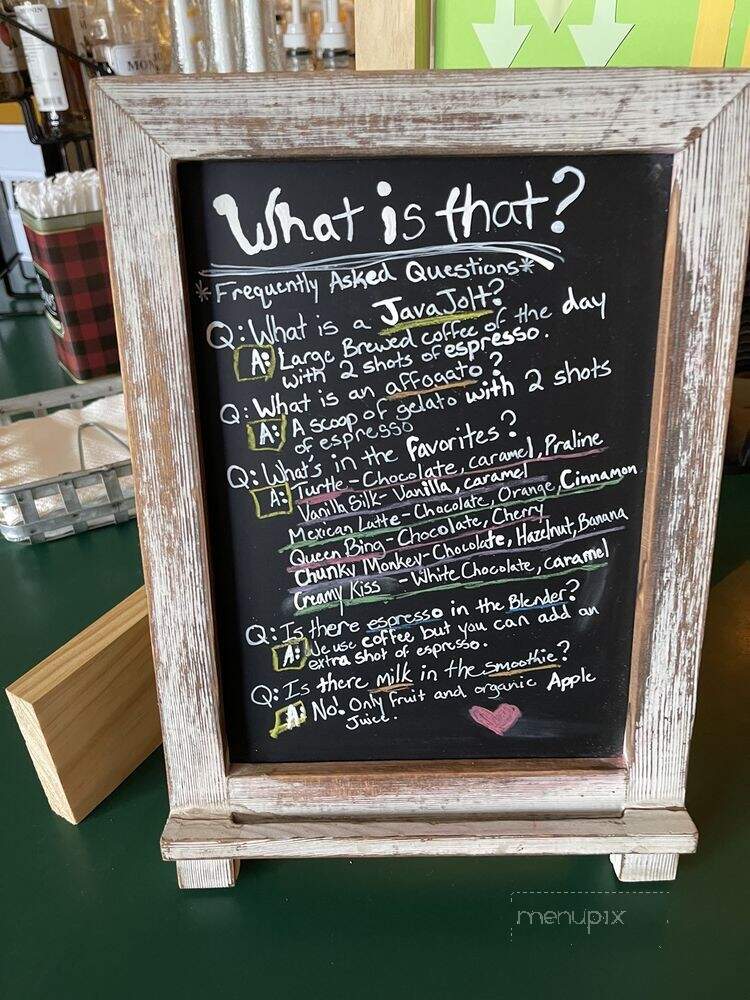 MONI
What is that?
*Frequently Asked Questions*
Q: What is a JavaJolt?
A: Large Brewed coffee of the day
with 2 shots of espresso.
Q: What is an affogato?
A: A scoop of gelato with 2 shots
of espresso
Q: What's in the favorites?
A: Turtle - Chocolate, caramel, Praline
Vanilla Silk - Vanilla, caramel
Mexican Latte - Chocolate, Orange, Cinnamon
Queen Bing - Chocolate, Cherry
Chunky Monkey - Chocolate, Hazelnut, Banana
Creamy Kiss - White Chocolate, caramel
Q: Is there espresso in the Blender?
A: We use coffee but you can add an
extra shot of espresso.
Q: Is there milk in the smoothie?
A: No! Only fruit and organic Apple
Juice.
menupix